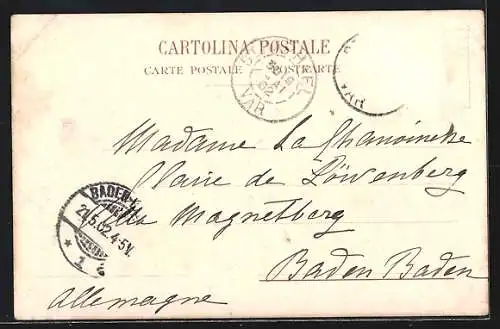 CARTOLINA POSTALE
CARTE POSTALE POSTKARTE
VAR
VAR
Madame La Chanoinesse
Claire de Löwenberg
BADEN-
21.5.02.4-5N.
* 1
Villa Magnetberg
Baden Baden
Allemagne